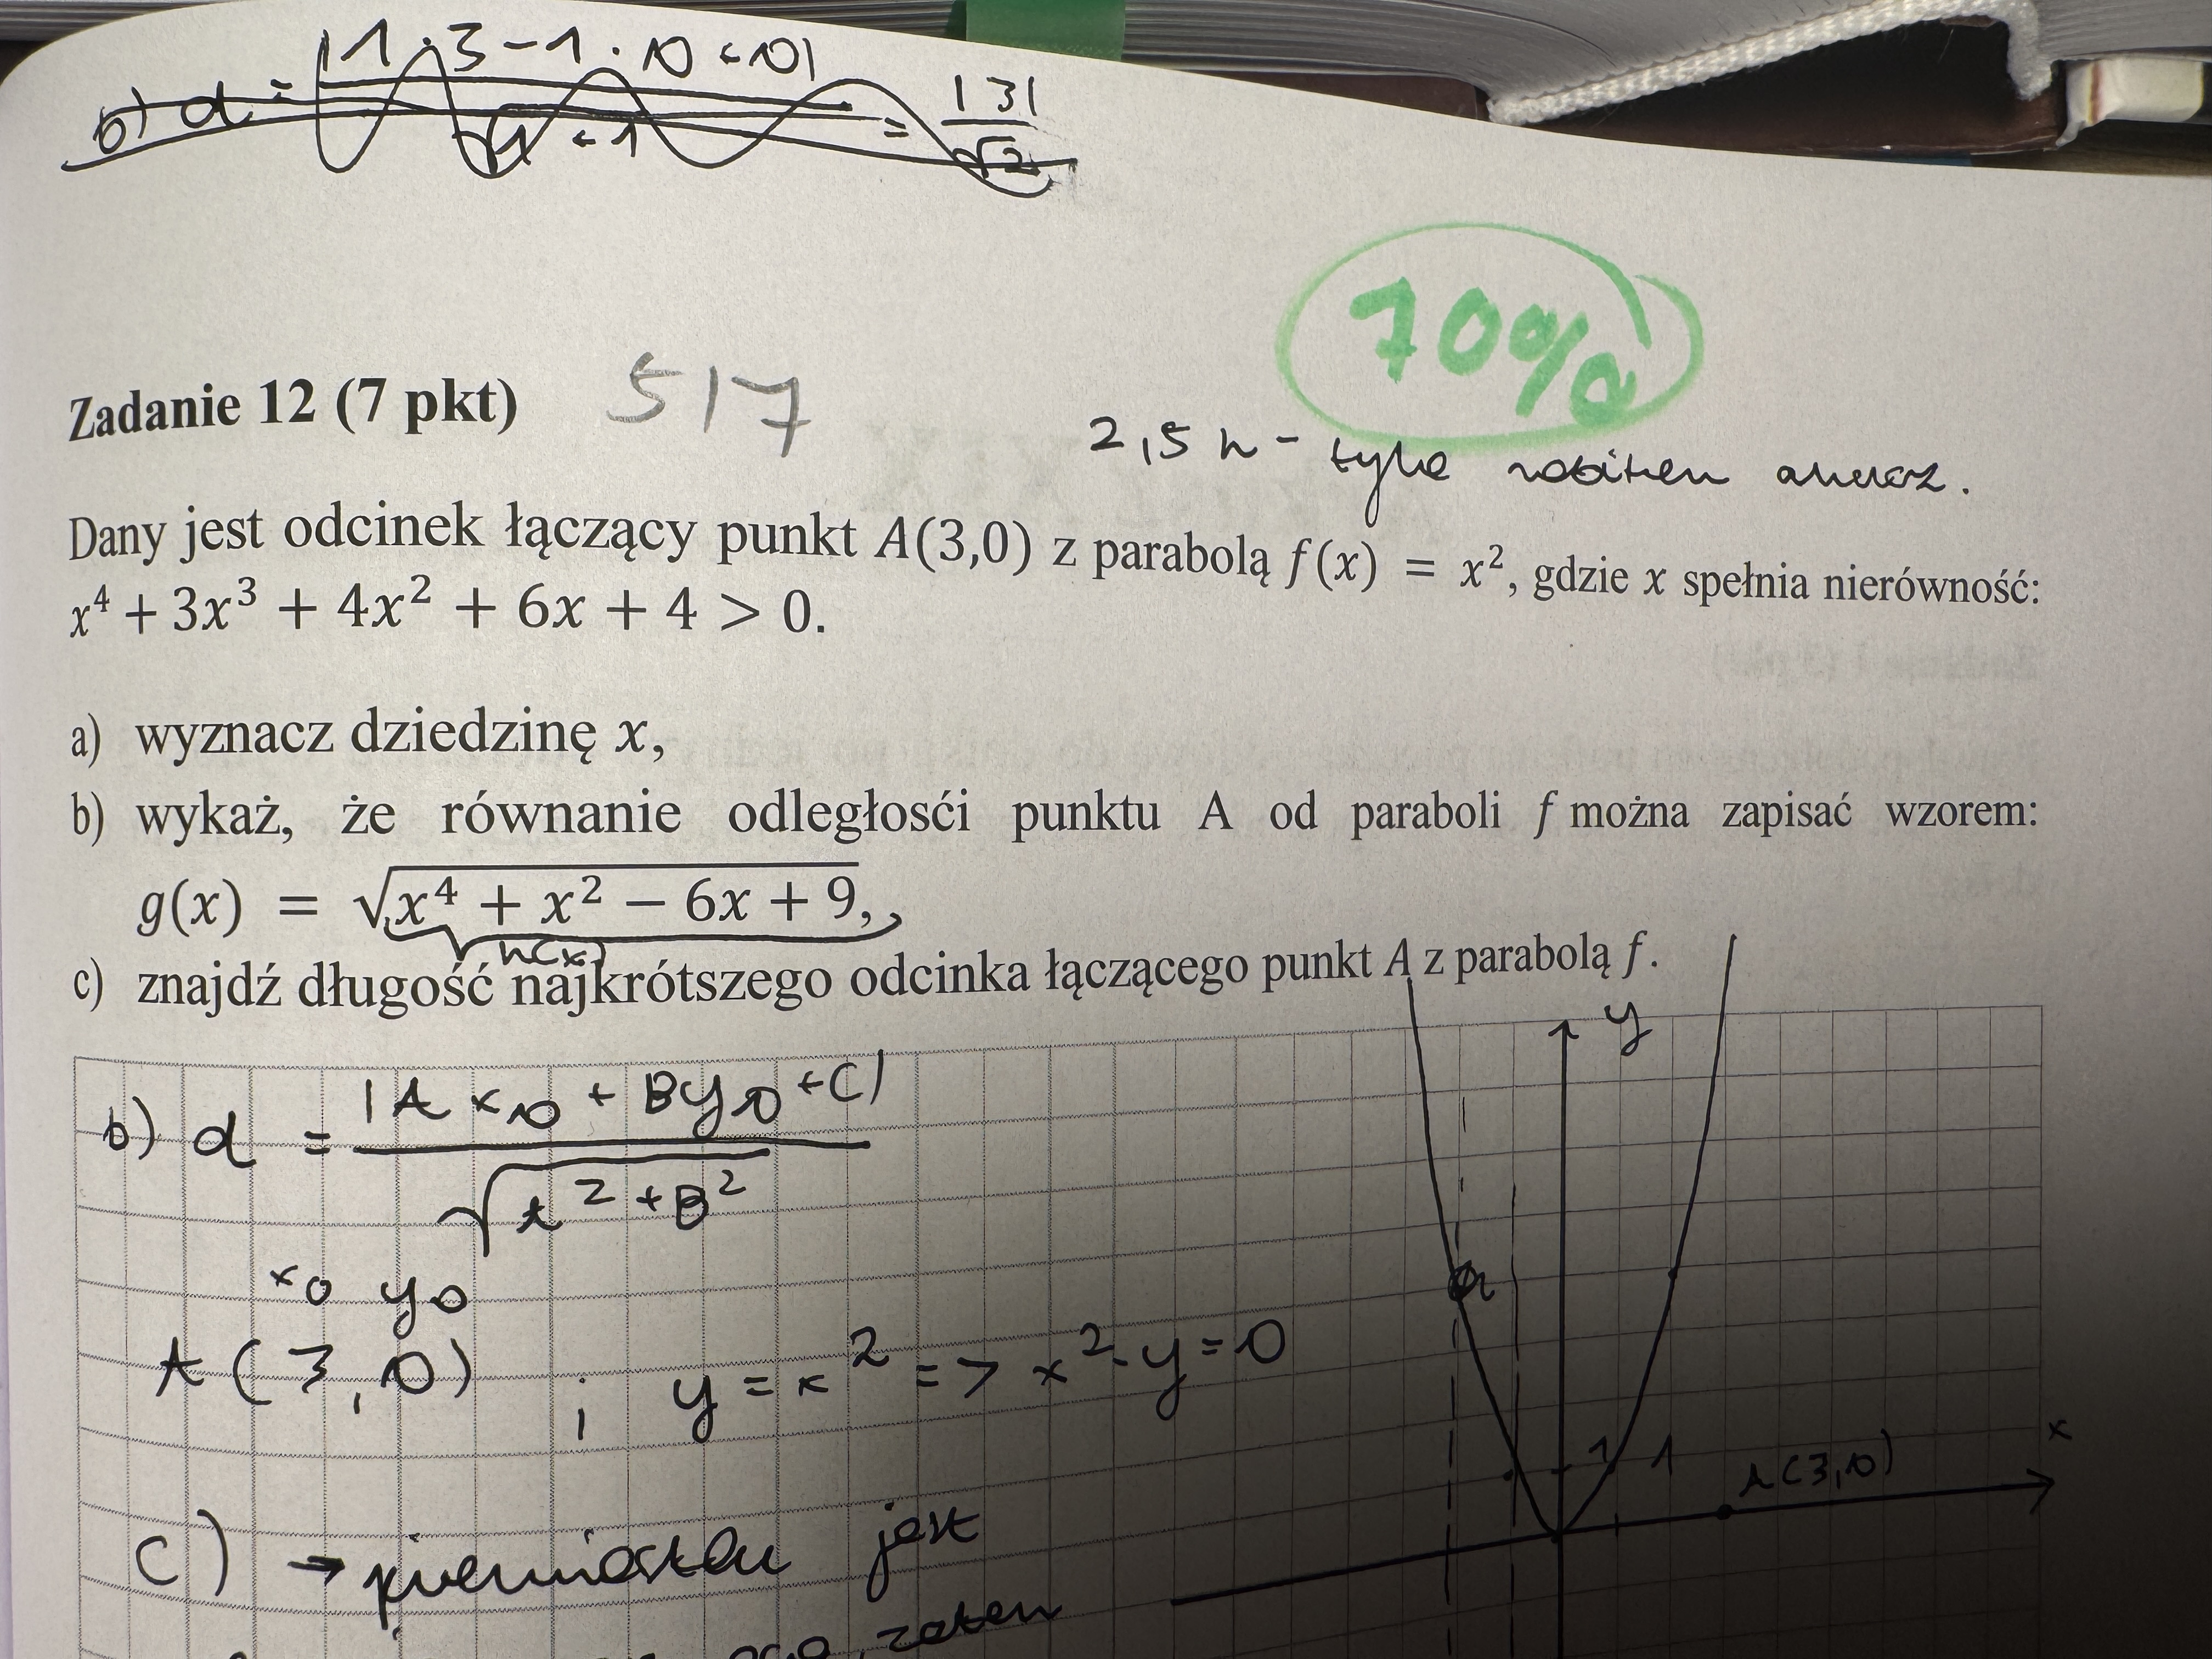 b) d = |1·3-1·0+0| / √1+1 = |3| / √2
70%
Zadanie 12 (7 pkt) 5/7
2,5 h - tyle robiłem arkusz.
Dany jest odcinek łączący punkt A(3,0) z parabolą f(x) = x², gdzie x spełnia nierówność:
x⁴ + 3x³ + 4x² + 6x + 4 > 0.
a) wyznacz dziedzinę x,
b) wykaż, że równanie odległosći punktu A od paraboli f można zapisać wzorem:
g(x) = √x⁴ + x² − 6x + 9,
h(x)
c) znajdź długość najkrótszego odcinka łączącego punkt A z parabolą f.
y
b) d = |Ax0 + By0 + C| / √A² + B²
x0 y0
A(3,0) ; y = x² => x² - y = 0
1 1 A(3,0) x
C) → pierwiastek jest
zatem